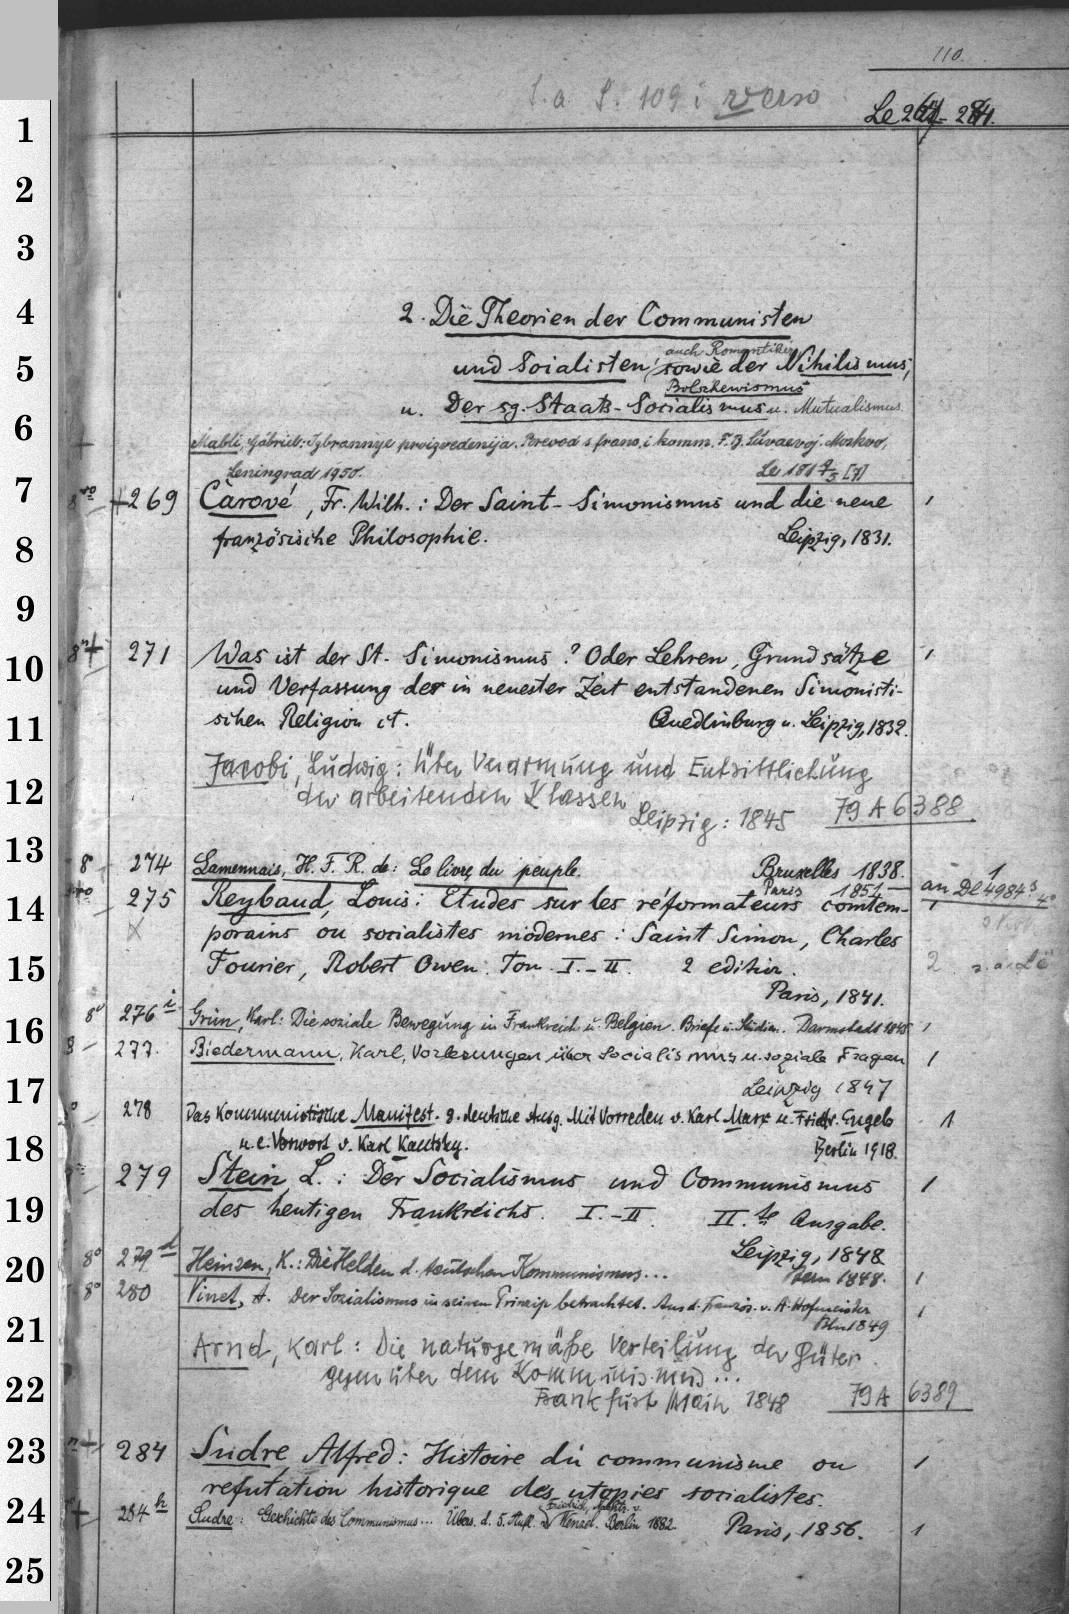 110.
S. a. S. 109 i verso
1
2
3
4
2. Die Theorien der Communisten
auch Romantiker
5
und Soialisten, sowie der Nihilismus,
Bolschewismus
u. Der sg. Staats-Socialismus u. Mutualismus.
6
Mabli, Gabriel: Izbrannye proizvedenija. Perevod s franc. i komm. Moskva,
Leningrad 1950.
7
8vo 269 Carové, Fr. Wilh.: Der Saint-Simonismus und die neue 1
8
französische Philosophie. Leipzig, 1831.
9
10
271 Was ist der St. Simonismus? Oder Lehren, Grundsätze 1
und Verfassung der in neuester Zeit entstandenen Simonisti-
11
schen Religion ct. Quedlinburg u. Leipzig, 1832.
Jacobi, Ludwig: Über Verarmung und Entsittlichung
12
der arbeitenden Klassen
Leipzig: 1845 79 A 6388
13
8° 274 Lamennais, H. F. R. de: Le livre du peuple. Bruxelles 1838. 1
Paris 1851. an Dl 4984
14
275 Reybaud, Louis: Etudes sur les réformateurs comtem-
porains ou socialistes modernes: Saint Simon, Charles
15
Fourier, Robert Owen. Tom. I.-II. 2 edition. 2
Paris, 1841.
16
8° 276 i Grün, Karl: Die soziale Bewegung in Frankreich u. Belgien. Briefe u. Studien. Darmstadt 1845 1
277. Biedermann, Karl, Vorlesungen über Socialismus u. soziale Fragen 1
17
Leipzig 1847
278 Das Kommunistische Manifest. 8. deutsche Ausg. Mit Vorreden v. Karl Marx u. Friedr. Engels 1
18
u. e. Vorwort v. Karl Kautsky. Berlin 1918.
279 Stein L.: Der Socialismus und Communismus 1
19
des heutigen Frankreichs. I.-II. II.te Ausgabe.
Leipzig, 1848
20
8° 279 d Heinzen, K.: Die Helden d. teutschen Kommunismus... Bern 1848. 1
8° 280 Vinet, A. Der Sozialismus in seinem Prinzip betrachtet. Aus d. Französ. v. A. Hofmeister 1
21
Bln 1849
Arnd, Karl: Die naturgemäße Verteilung der Güter
22
gegenüber dem Kommunismus...
Frankfurt/Main 1848 79 A 6389
23
284 Sudre, Alfred: Histoire du communisme ou 1
refutation historique des utopies socialistes.
24
284 h Sudre: Geschichte des Communismus... Übers. d. 5. Aufl. v. Friedrich Wenzel. Berlin 1882. Paris, 1856. 1
25